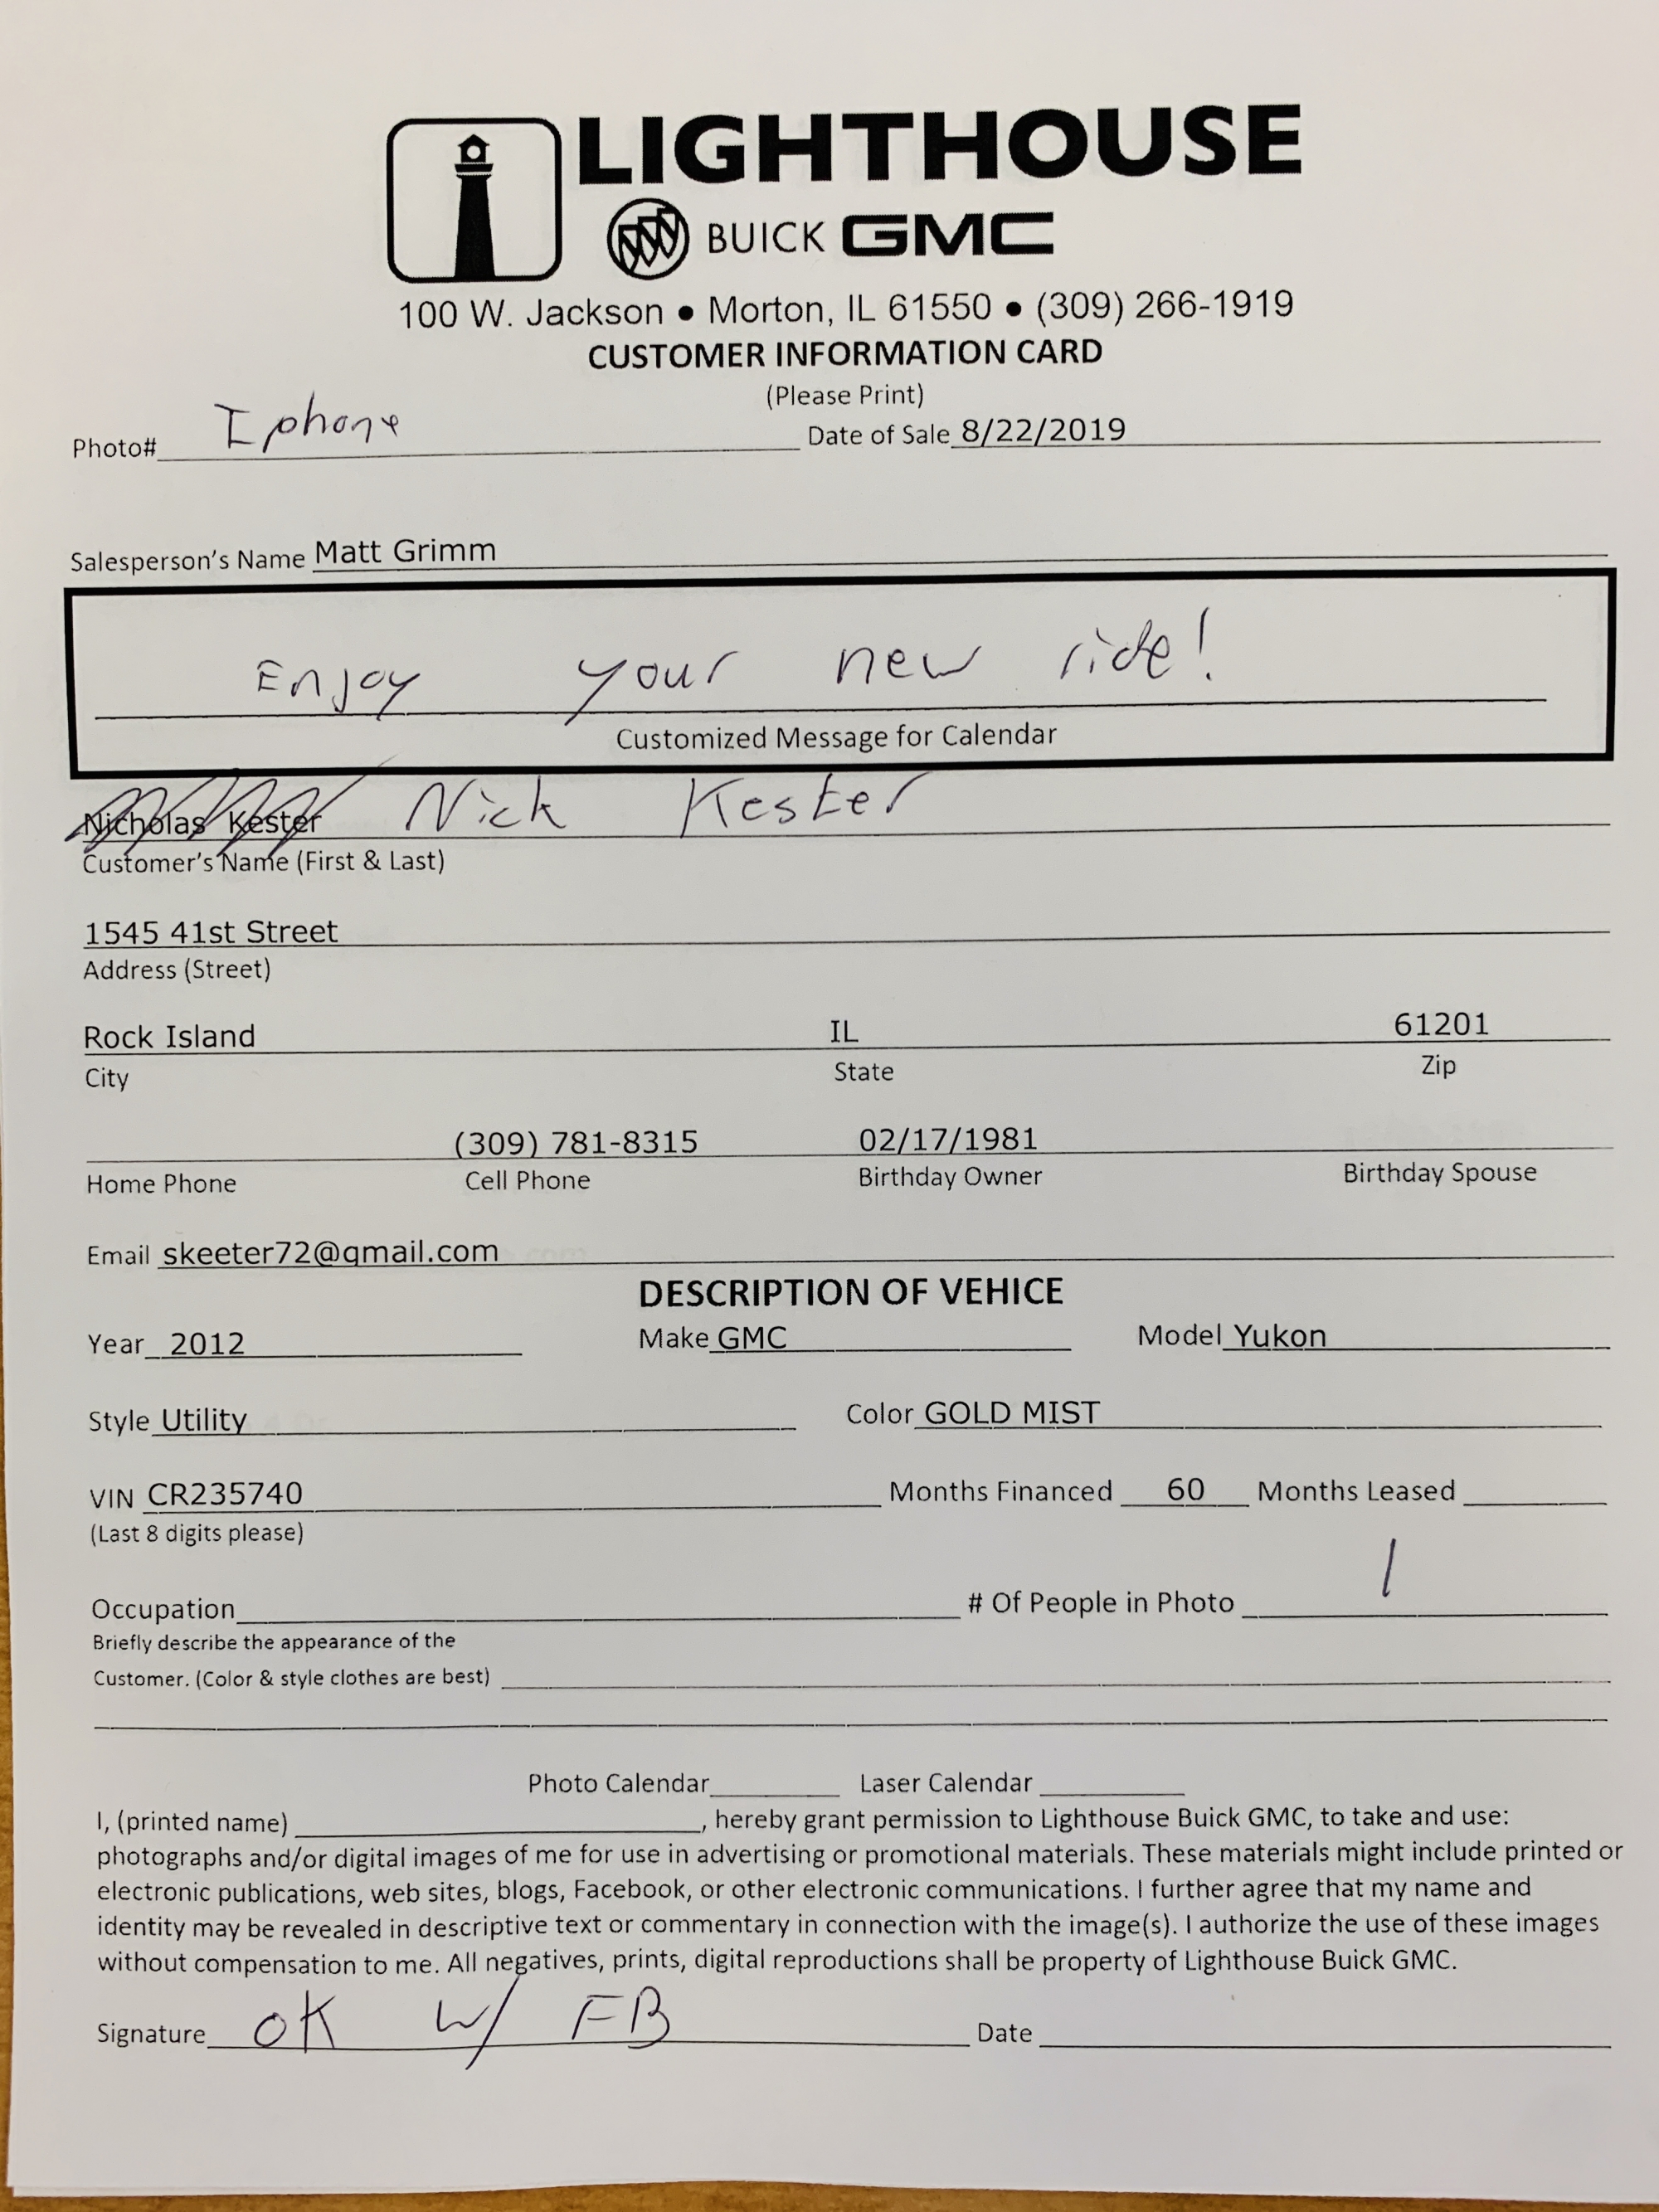 LIGHTHOUSE
BUICK GMC
100 W. Jackson • Morton, IL 61550 • (309) 266-1919
CUSTOMER INFORMATION CARD
(Please Print)
Photo# Iphone Date of Sale 8/22/2019
Salesperson's Name Matt Grimm
Enjoy your new ride!
Customized Message for Calendar
Nicholas Kester Nick Kester
Customer's Name (First & Last)
1545 41st Street
Address (Street)
Rock Island IL 61201
City State Zip
(309) 781-8315 02/17/1981
Home Phone Cell Phone Birthday Owner Birthday Spouse
Email skeeter72@gmail.com
DESCRIPTION OF VEHICE
Year 2012 Make GMC Model Yukon
Style Utility Color GOLD MIST
VIN CR235740 Months Financed 60 Months Leased
(Last 8 digits please)
Occupation # Of People in Photo 1
Briefly describe the appearance of the
Customer. (Color & style clothes are best)
Photo Calendar Laser Calendar
I, (printed name) , hereby grant permission to Lighthouse Buick GMC, to take and use:
photographs and/or digital images of me for use in advertising or promotional materials. These materials might include printed or
electronic publications, web sites, blogs, Facebook, or other electronic communications. I further agree that my name and
identity may be revealed in descriptive text or commentary in connection with the image(s). I authorize the use of these images
without compensation to me. All negatives, prints, digital reproductions shall be property of Lighthouse Buick GMC.
Signature OK w/ FB Date